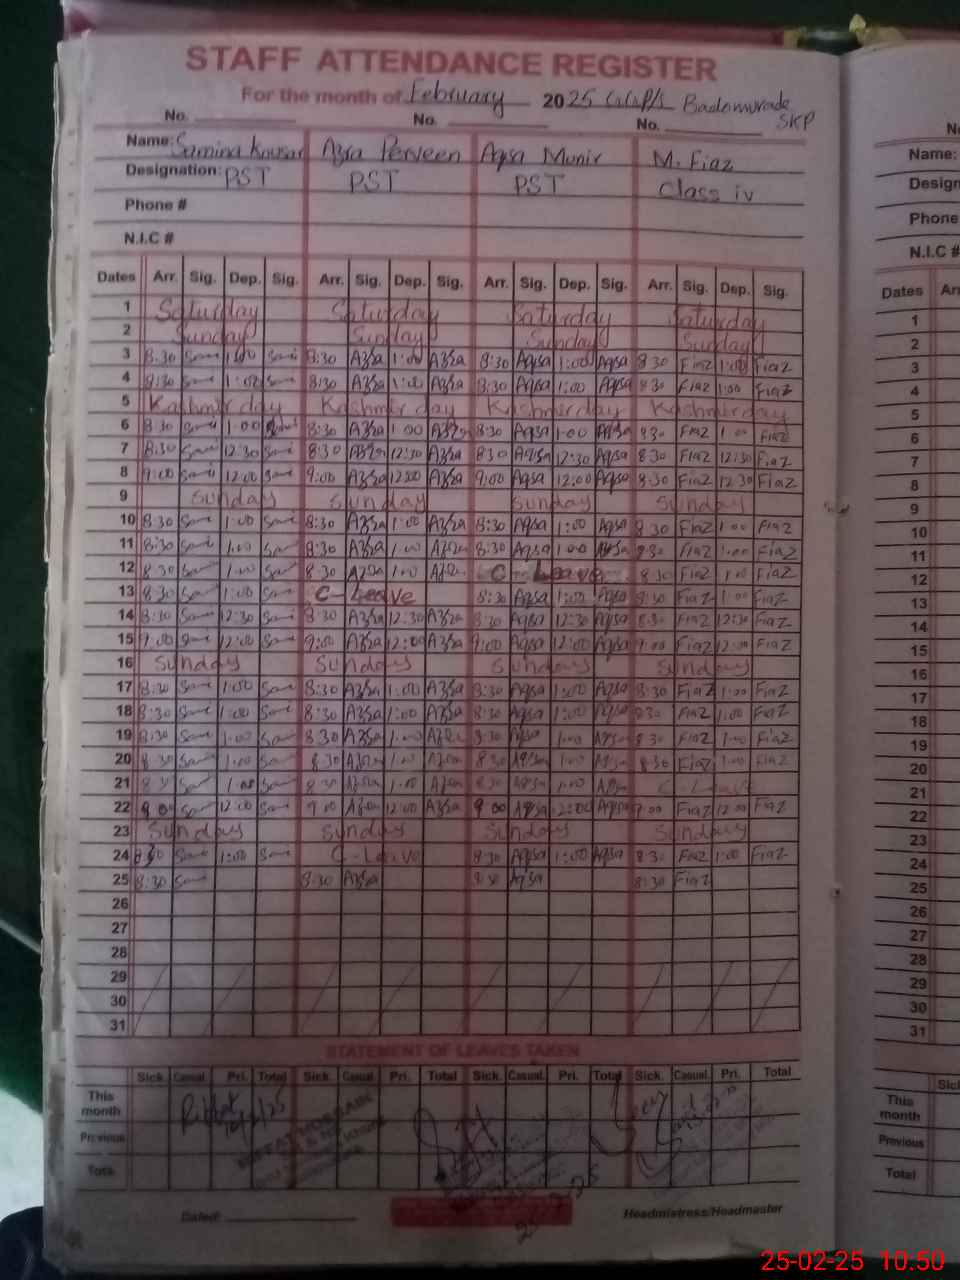 STAFF ATTENDANCE REGISTER
For the month of February 2025 GGP/S Badomurade SKP
No. No. No.
Name: Samina Kousar Azra Perveen Aqsa Munir M. Fiaz
Designation: PST PST PST Class iv
Phone #
N.I.C #
Dates Arr. Sig. Dep. Sig. Arr. Sig. Dep. Sig. Arr. Sig. Dep. Sig. Arr. Sig. Dep. Sig.
1 Saturday Saturday Saturday Saturday
2 Sunday Sunday Sunday Sunday
3 8:30 Sami 1:00 Sami 8:30 Azra 1:00 Azra 8:30 Aqsa 1:00 Aqsa 8 30 Fiaz 1:00 Fiaz
4 8:30 Sami 1:00 Sami 8:30 Azra 1:00 Azra 8:30 Aqsa 1:00 Aqsa 8 30 Fiaz 1:00 Fiaz
5 Kashmir day Kashmir day Kashmir day Kashmir day
6 8:30 Sami 1:00 8:30 Azra 1 00 Azra 8:30 Aqsa 1:00 Aqsa 8 30 Fiaz 1 00 Fiaz
7 8:30 Sami 12:30 Sami 8:30 Azra 12:30 Azra 8 30 Aqsa 12:30 Aqsa 8 30 Fiaz 12:30 Fiaz
8 9:00 Sami 12:00 Sami 9:00 Azra 12:00 Azra 9:00 Aqsa 12:00 Aqsa 8:30 Fiaz 12 30 Fiaz
9 Sunday Sunday Sunday Sunday
10 8:30 Sami 1:00 Sami 8:30 Azra 1:00 Azra 8:30 Aqsa 1:00 Aqsa 8 30 Fiaz 1 00 Fiaz
11 8:30 Sami 1:00 Sami 8:30 Azra 1:00 Azra 8:30 Aqsa 1 00 Aqsa 8 30 Fiaz 1:00 Fiaz
12 8 30 Sami 1:00 Sami 8 30 Azra 1:00 Azra C - Leave 8 30 Fiaz 1:00 Fiaz
13 8:30 Sami 1:00 Sami C - Leave 8:30 Aqsa 1:00 Aqsa 8:30 Fiaz 1:00 Fiaz
14 8:30 Sami 12:30 Sami 8 30 Azra 12:30 Azra 8:30 Aqsa 12:30 Aqsa 8:30 Fiaz 12:30 Fiaz
15 9:00 Sami 12:00 Sami 9:00 Azra 12:00 Azra 9:00 Aqsa 12:00 Aqsa 9:00 Fiaz 12:00 Fiaz
16 Sunday Sunday Sunday Sunday
17 8:30 Sami 1:00 Sami 8:30 Azra 1:00 Azra 8:30 Aqsa 1:00 Aqsa 8:30 Fiaz 1:00 Fiaz
18 8:30 Sami 1:00 Sami 8:30 Azra 1:00 Azra 8:30 Aqsa 1:00 Aqsa 8 30 Fiaz 1:00 Fiaz
19 8:30 Sami 1:00 Sami 8 30 Azra 1:00 Azra 8:30 Aqsa 1:00 Aqsa 8 30 Fiaz 1:00 Fiaz
20 8 30 Sami 1:00 Sami 8:30 Azra 1:00 Azra 8:30 Aqsa 1:00 Aqsa 8:30 Fiaz 1:00 Fiaz
21 8 30 Sami 1:00 Sami 8:30 Azra 1:00 Azra 8:30 Aqsa 1:00 Aqsa C - Leave
22 9 00 Sami 12:00 Sami 9:00 Azra 12:00 Azra 9 00 Aqsa 12:00 Aqsa 9:00 Fiaz 12 00 Fiaz
23 Sunday Sunday Sunday Sunday
24 8:30 Sami 1:00 Sami C - Leave 8:30 Aqsa 1:00 Aqsa 8:30 Fiaz 1:00 Fiaz
25 8:30 Sami 8:30 Azra 8:30 Aqsa 8:30 Fiaz
26
27
28
29
30
31
STATEMENT OF LEAVES TAKEN
Sick. Casual. Pri. Total Sick. Casual. Pri. Total Sick. Casual. Pri. Total Sick. Casual. Pri. Total
This month
Previous
Total
Dated: Headmistress/Headmaster
Name:
Design
Phone
N.I.C #
Dates Arr
1
2
3
4
5
6
7
8
9
10
11
12
13
14
15
16
17
18
19
20
21
22
23
24
25
26
27
28
29
30
31
Sick
This month
Previous
Total
25-02-25 10:50